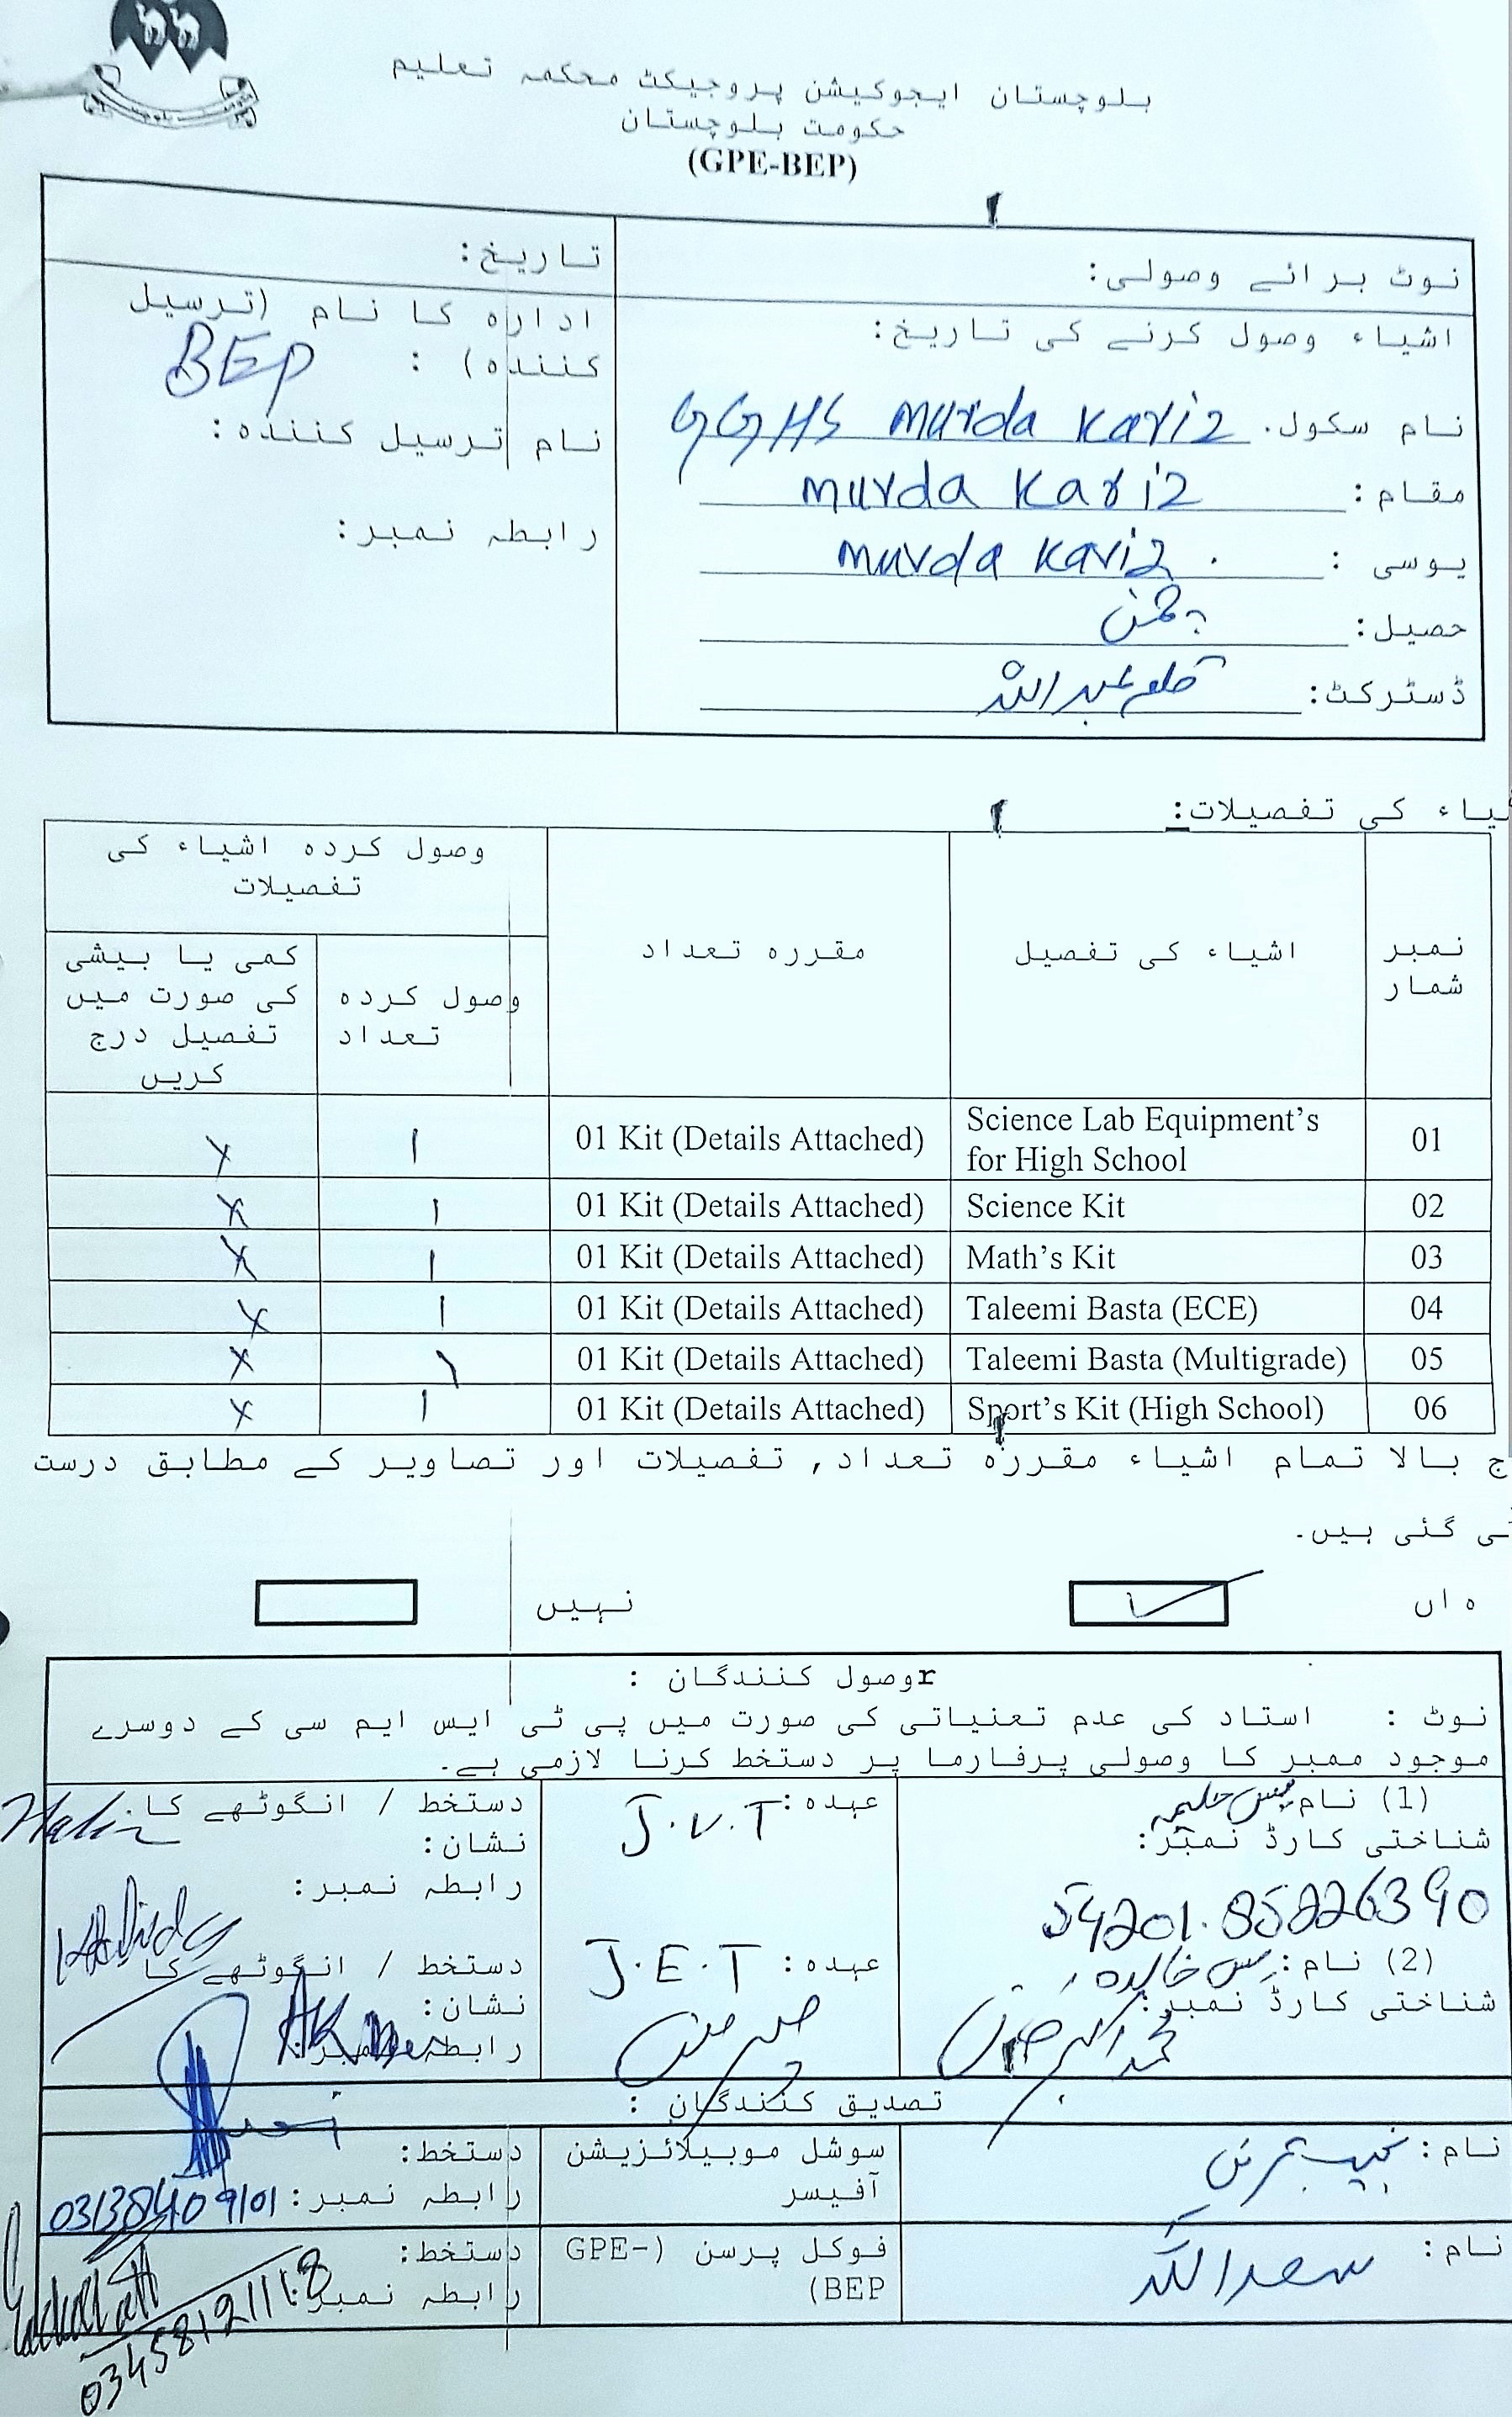 بلوچستان ایجوکیشن پروجیکٹ محکمہ تعلیم
حکومت بلوچستان
(GPE-BEP)
نوٹ برائے وصولی:
تاریخ:
اشیاء وصول کرنے کی تاریخ:
نام سکول. GGHS murda Kariz
مقام: murda Kariz
یوسی : murda Kariz
حصیل: چمن
ڈسٹرکٹ: قلعہ عبداللہ
ادارہ کا نام (ترسیل
کنندہ) : BEP
نام ترسیل کنندہ:
رابطہ نمبر:
یاء کی تفصیلات:
نمبر شمار
اشیاء کی تفصیل
مقررہ تعداد
وصول کردہ اشیاء کی تفصیلات
وصول کردہ تعداد
کمی یا بیشی کی صورت میں تفصیل درج کریں
01 Science Lab Equipment's for High School 01 Kit (Details Attached) 1 x
02 Science Kit 01 Kit (Details Attached) 1 x
03 Math's Kit 01 Kit (Details Attached) 1 x
04 Taleemi Basta (ECE) 01 Kit (Details Attached) 1 x
05 Taleemi Basta (Multigrade) 01 Kit (Details Attached) 1 x
06 Sport's Kit (High School) 01 Kit (Details Attached) 1 x
ج بالا تمام اشیاء مقررہ تعداد, تفصیلات اور تصاویر کے مطابق درست
ی گئی ہیں.
ہ اں ✓ نہیں
rوصول کنندگان :
نوٹ : استاد کی عدم تعنیاتی کی صورت میں پی ٹی ایس ایم سی کے دوسرے
موجود ممبر کا وصولی پرفارما پر دستخط کرنا لازمی ہے.
(1) نام مس حلیمہ
شناختی کارڈ نمبر:
54201.85226390
عہدہ: J.V.T
دستخط / انگوٹھے کا
نشان:
رابطہ نمبر:
(2) نام: مس خالدہ
شناختی کارڈ نمبر:
عہدہ: J.E.T
دستخط / انگوٹھے کا
نشان:
رابطہ نمبر:
تصدیق کنندگان :
نام:
سوشل موبیلائزیشن آفیسر
دستخط:
رابطہ نمبر: 03138409101
نام: سعداللہ
فوکل پرسن (GPE-BEP)
دستخط:
رابطہ نمبر:
03458121118